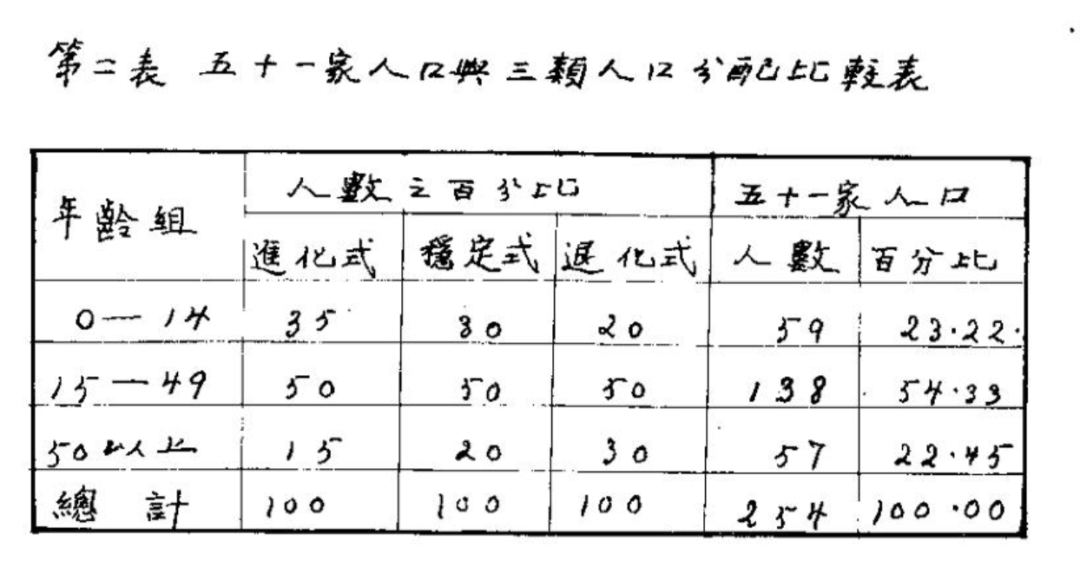 第二表 五十一家人口與三類人口分配比較表
年齡組 人數之百分比 五十一家人口
進化式 穩定式 退化式 人數 百分比
0—14 35 30 20 59 23.22
15—49 50 50 50 138 54.33
50以上 15 20 30 57 22.45
總計 100 100 100 254 100.00